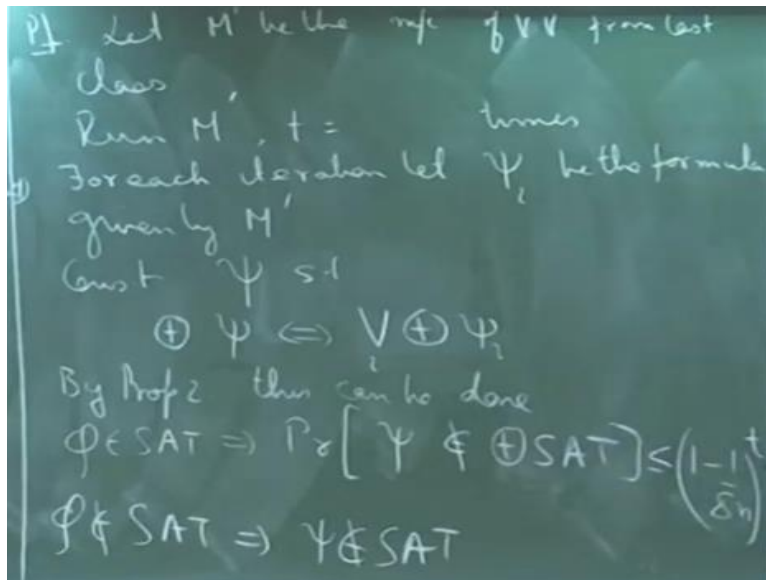 Pf Let M' be the m/c of VV from last
class
Run M', t = times
For each iteration let Ψ_i be the formula
given by M'
Const Ψ s.t
⊕ Ψ ⇔ ∨_i ⊕ Ψ_i
By Prop 2 this can be done
φ ∈ SAT ⇒ Pr[ Ψ ∉ ⊕ SAT] ≤ (1 - 1/8n)^t
φ ∉ SAT ⇒ Ψ ∉ SAT